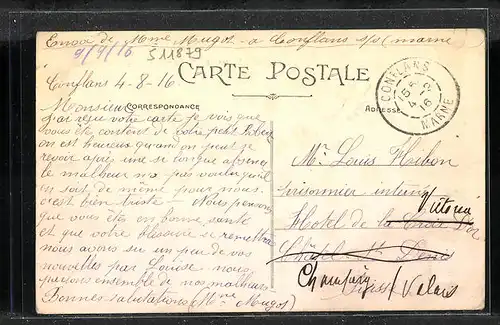 Envoi de Mme Mugot à Conflans s/s (marne)
9/9/16 511879
Conflans 4-8-16
CARTE POSTALE
CONFLANS
15
4 - 
16
MARNE
CORRESPONDANCE
ADRESSE
Monsieur
J'ai reçu votre carte je vois que
vous êtes content de votre petit
on est heureux quand on peut se
revoir après une si longue absence
le malheur n'a pas voulu qu'il
en soit de même pour nous
c'est bien triste - Nous pensons
que vous êtes en bonne santé
et que votre blessure se remettra
nous avons su un peu de vos
nouvelles par Louise nous
pensons ensemble de nos malheurs
Bonnes salutations (Mme Mugot)
Mr Louis Hibon
prisonnier interné
Hotel de la Croix d'Or
Châtel St Denis
Champéry / Valais
Suisse